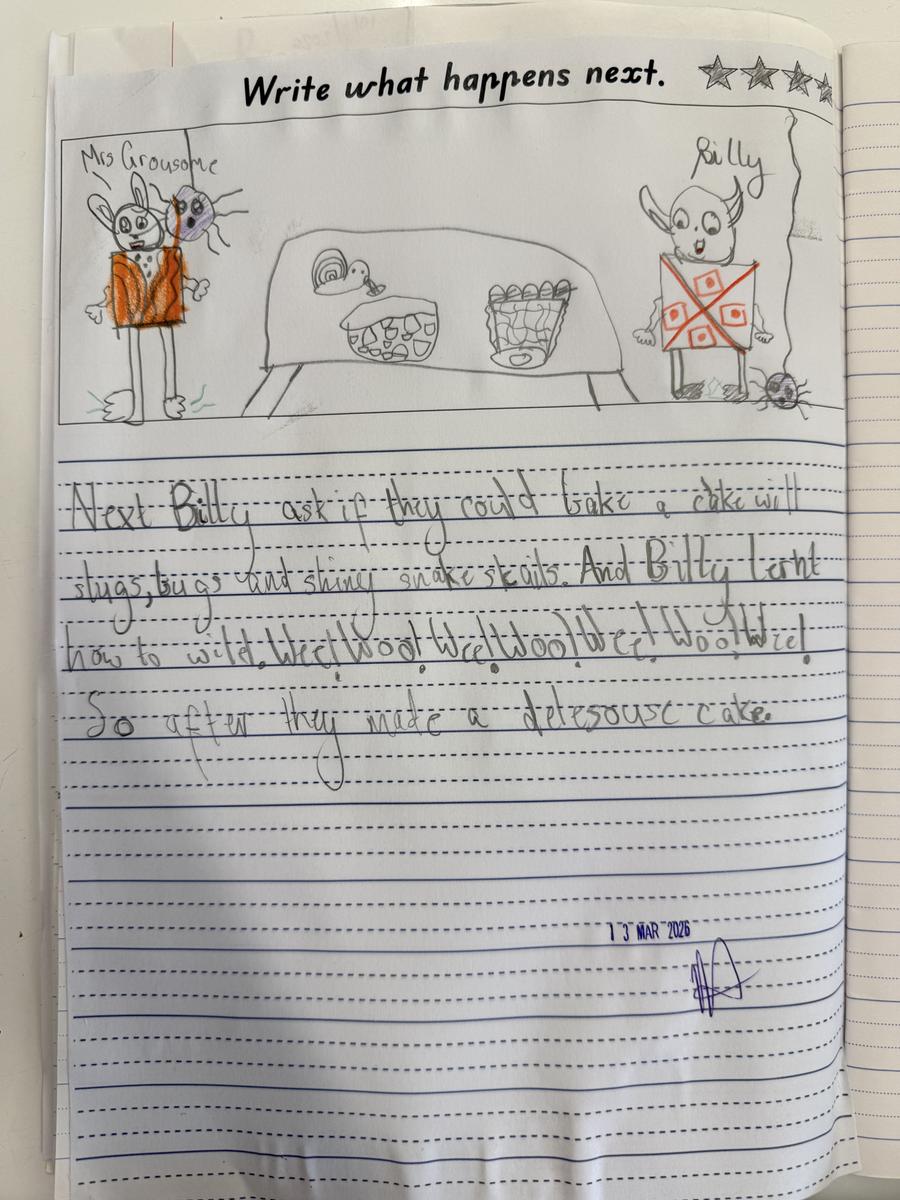 Write what happens next.
Mrs Grousome
Billy
Next Billy ask if they could bake a cake will
slugs, bugs and shiny snake skails. And Billy lernt
how to wild. Wee! Woo! Wee! Woo! Wee! Woo! Wee!
So after they made a delesouse cake.
13 MAR 2026